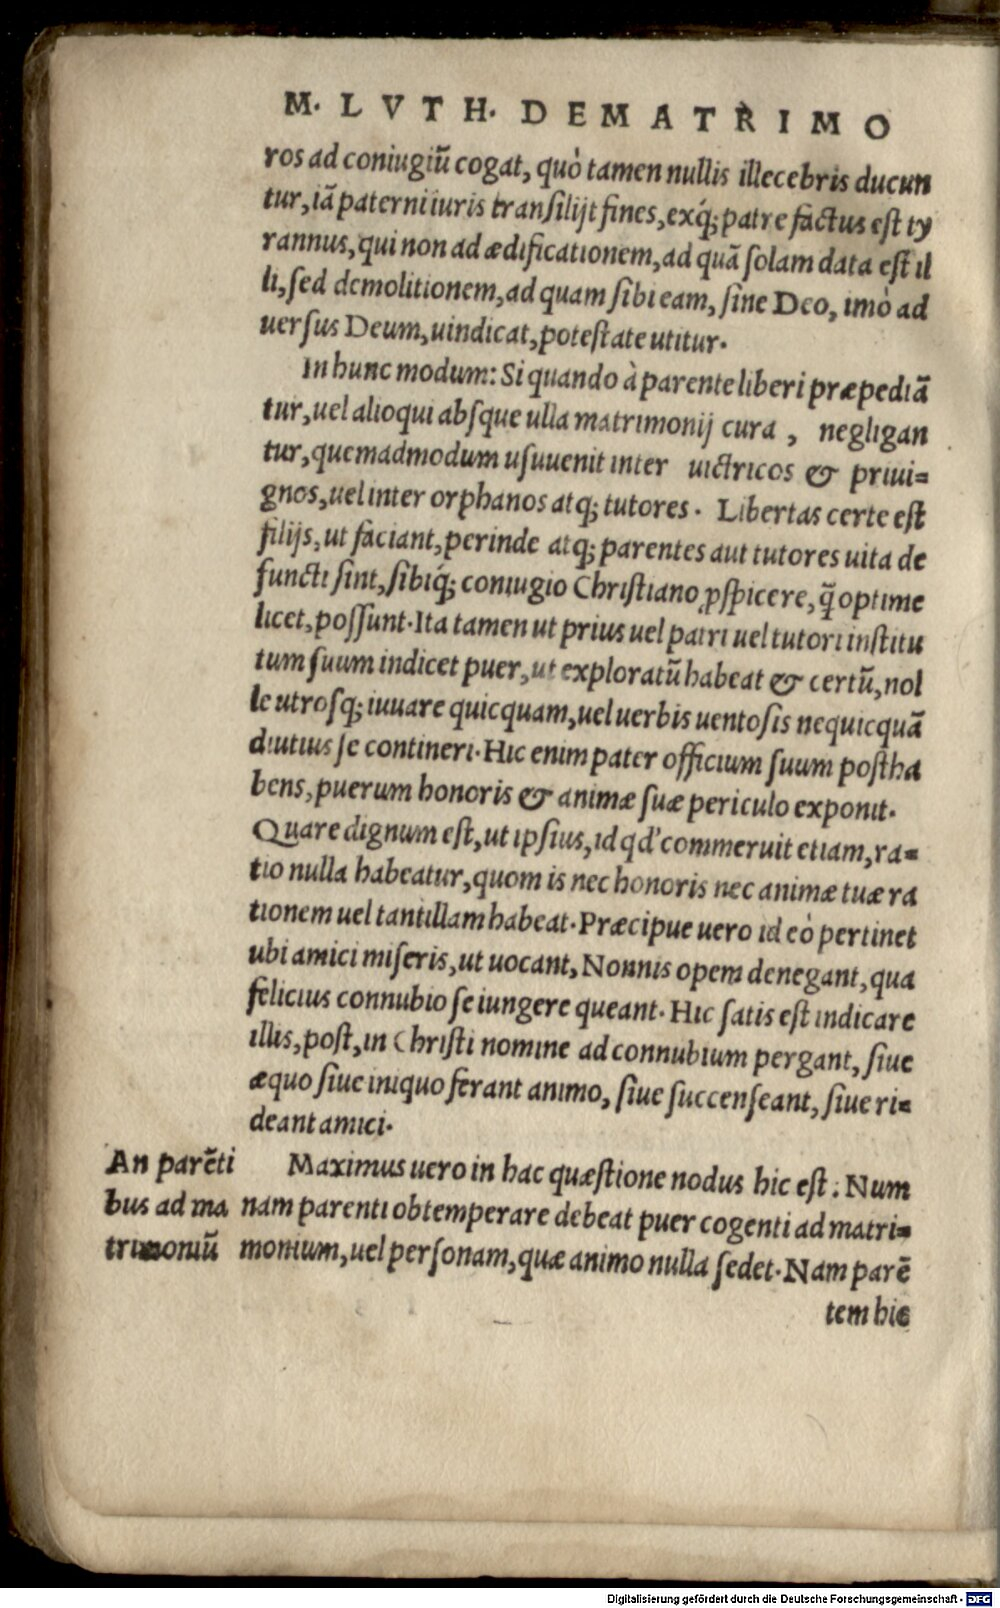 M. L V T H. D E M A T R I M O
ros ad coniugiũ cogat, quò tamen nullis illecebris ducun
tur, iã paterni iuris transilijt fines, exq́; patre factus est ty
rannus, qui non ad ædificationem, ad quã solam data est il
li, sed demolitionem, ad quam sibi eam, sine Deo, imò ad
uersus Deum, uindicat, potestate utitur.
In hunc modum: Si quando à parente liberi præpediã
tur, uel alioqui absque ulla matrimonij cura, negligan
tur, quemadmodum usuuenit inter uictricos & priui=
gnos, uel inter orphanos atq; tutores. Libertas certe est
filijs, ut faciant, perinde atq; parentes aut tutores uita de
functi sint, sibiq́; coniugio Christiano ꝓspicere, q̃ optime
licet, possunt. Ita tamen ut prius uel patri uel tutori institu
tum suum indicet puer, ut exploratũ habeat & certũ, nol
le utrosq; iuuare quicquam, uel uerbis uentosis nequicquã
diutius se contineri. Hic enim pater officium suum postha
bens, puerum honoris & animæ suæ periculo exponit.
Quare dignum est, ut ipsius, id qd' commeruit etiam, ra=
tio nulla habeatur, quom is nec honoris nec animæ tuæ ra
tionem uel tantillam habeat. Præcipue uero id eò pertinet
ubi amici miseris, ut uocant, Nonnis opem denegant, qua
felicius connubio se iungere queant. Hic satis est indicare
illis, post, in Christi nomine ad connubium pergant, siue
æquo siue iniquo ferant animo, siue succenseant, siue ri=
deant amici.
An parẽti
bus ad ma
trimoniũ
Maximus uero in hac quæstione nodus hic est: Num
nam parenti obtemperare debeat puer cogenti ad matri=
monium, uel personam, quæ animo nulla sedet. Nam parẽ
tem hic
Digitalisierung gefördert durch die Deutsche Forschungsgemeinschaft - DFG